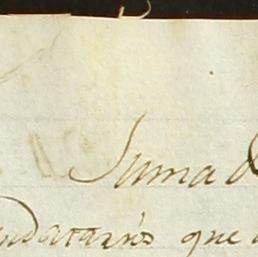 Suma d
ndatarios que